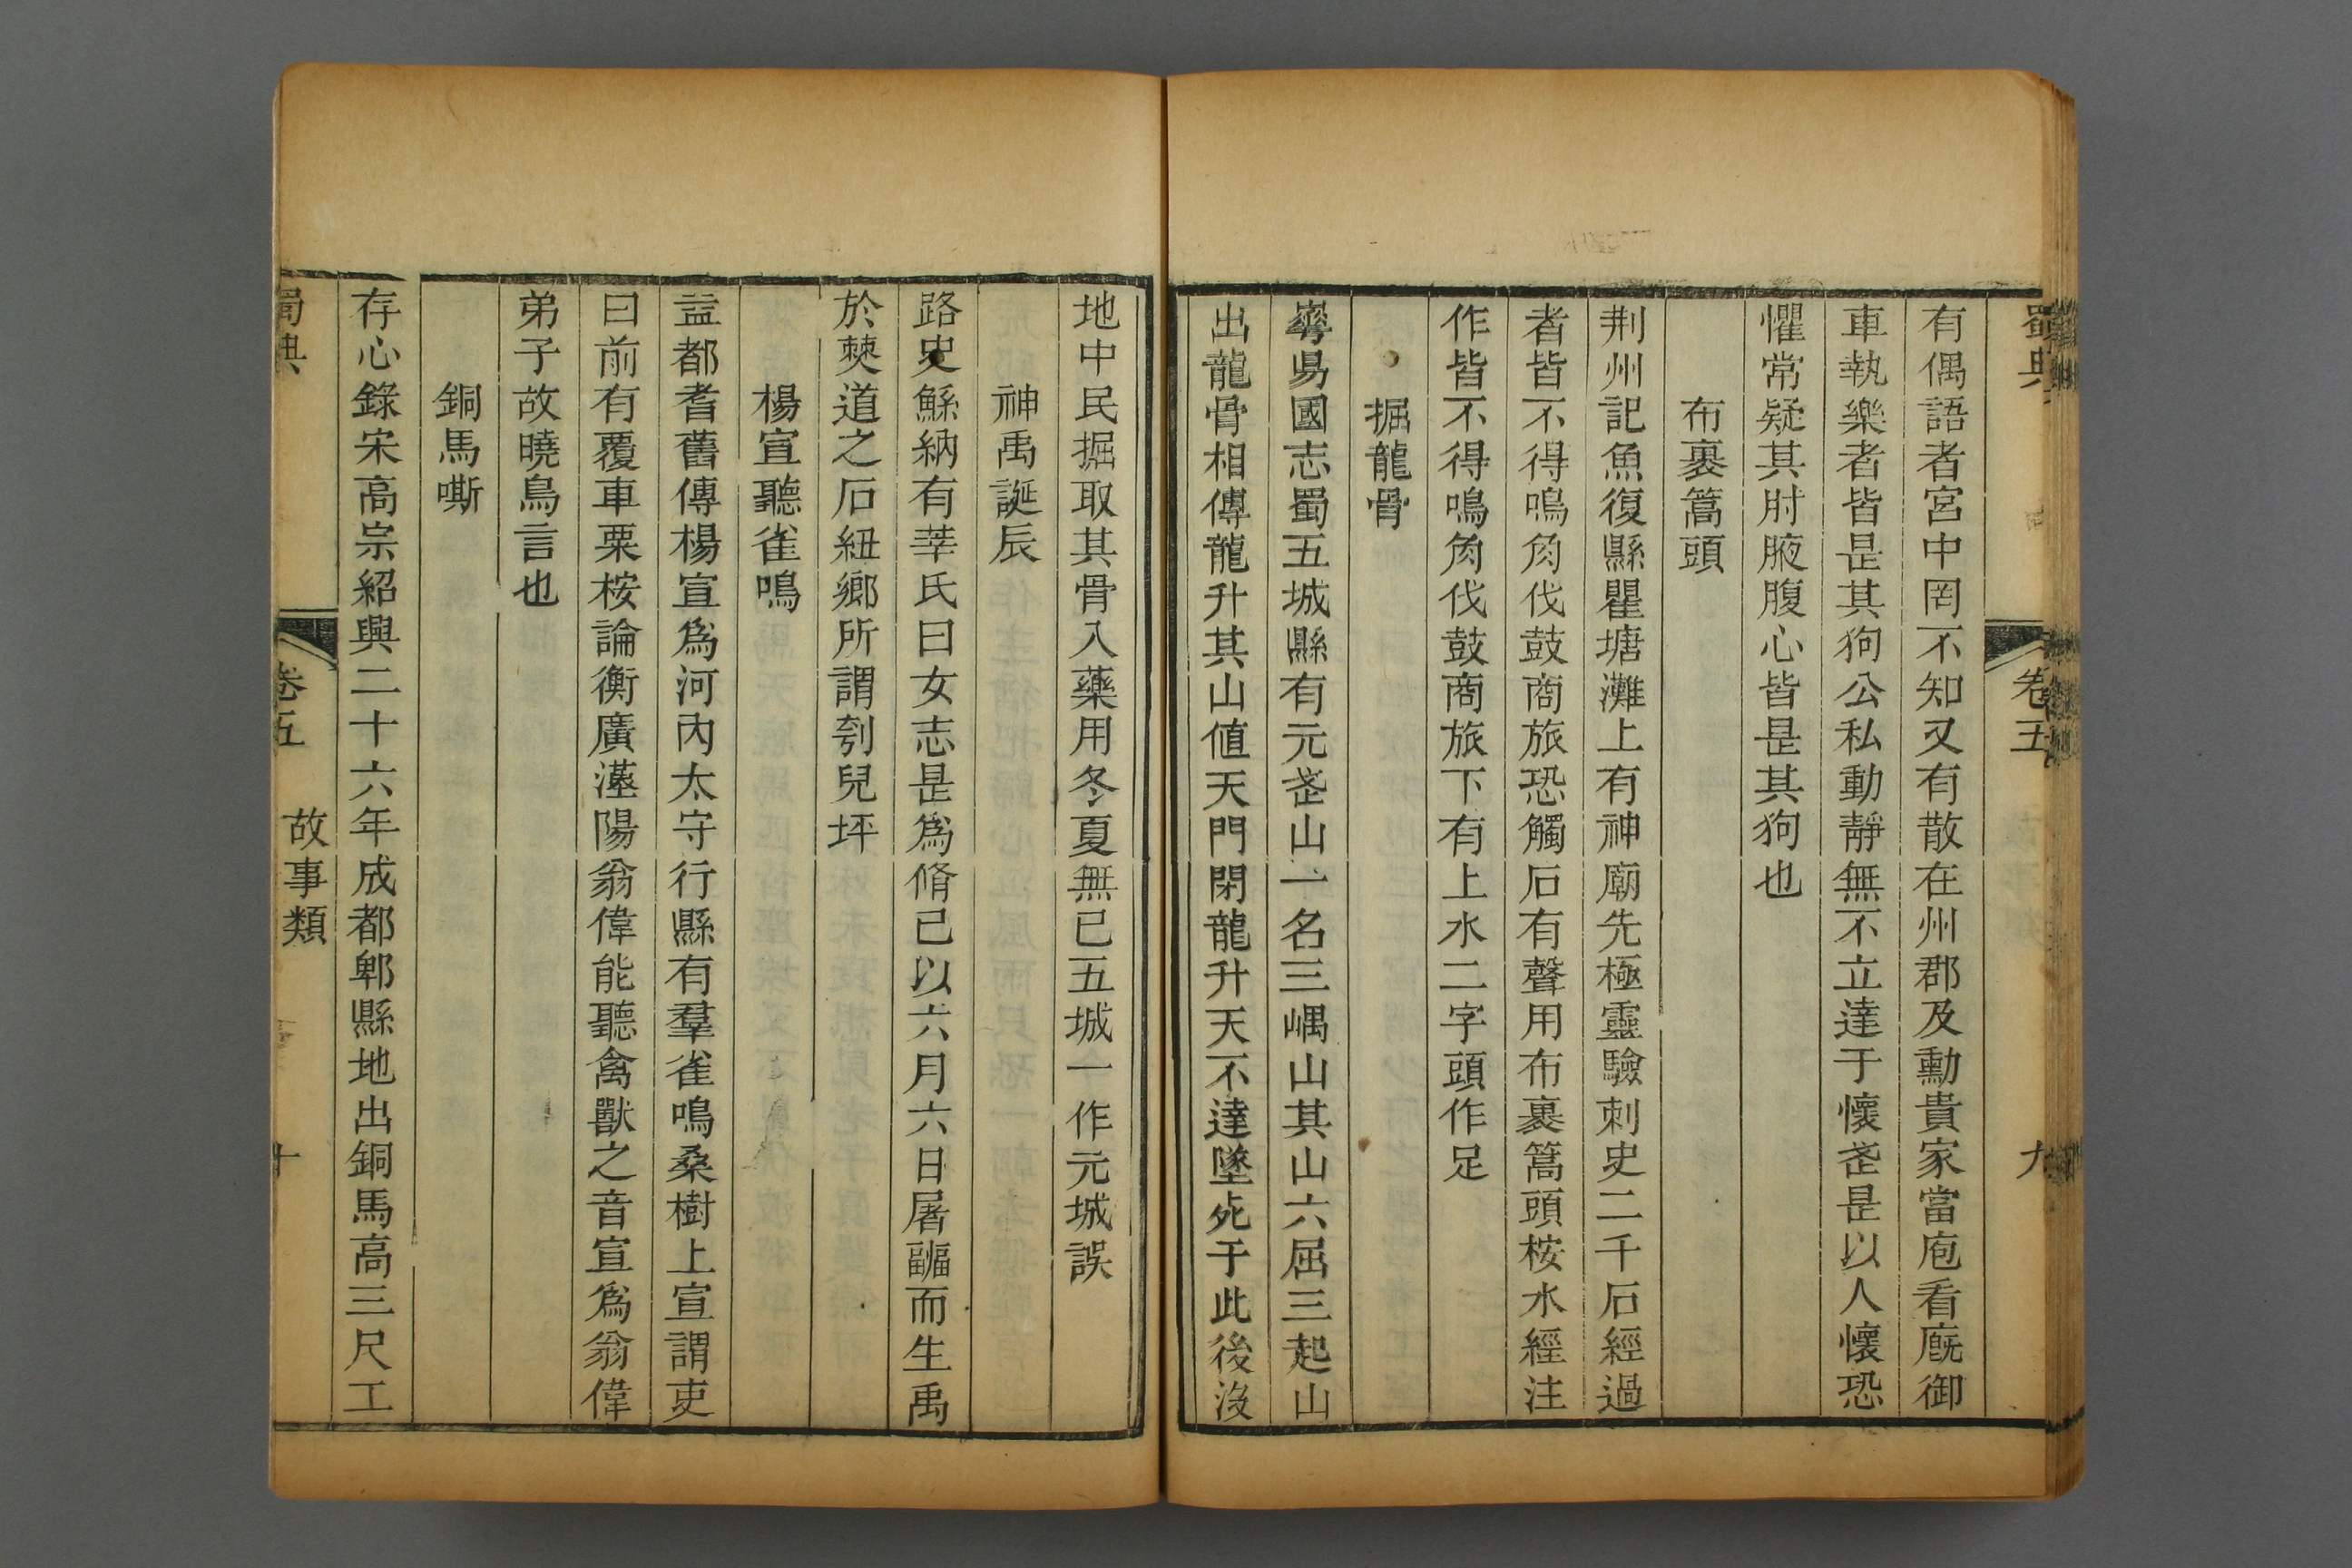 蜀典 卷五 九
有偶語者宮中罔不知又有散在州郡及勳貴家當庖看廐御
車執樂者皆是其狗公私動靜無不立達于懷𢗅是以人懷恐
懼常疑其肘腋腹心皆是其狗也
布裹篙頭
荆州記魚復縣瞿塘灘上有神廟先極靈驗刺史二千石經過
者皆不得鳴角伐鼓商旅恐觸石有聲用布裹篙頭桉水經注
作皆不得鳴角伐鼓商旅下有上水二字頭作足
掘龍骨
華昜國志蜀五城縣有元武山一名三嵎山其山六屈三起山
出龍骨相傳龍升其山值天門閉龍升天不達墜死于此後沒
地中民掘取其骨入藥用冬夏無已五城一作元城誤
神禹誕辰
路史鯀納有莘氏曰女志是爲脩己以六月六日屠䠋而生禹
於僰道之石紐鄉所謂刳兒坪
楊宣聽雀鳴
益都耆舊傳楊宣爲河內太守行縣有羣雀鳴桑樹上宣謂吏
曰前有覆車粟桉論衡廣漢陽翁偉能聽禽獸之音宣爲翁偉
弟子故曉鳥言也
銅馬嘶
存心錄宋高宗紹興二十六年成都郫縣地出銅馬高三尺工
蜀典 卷五 故事類 十